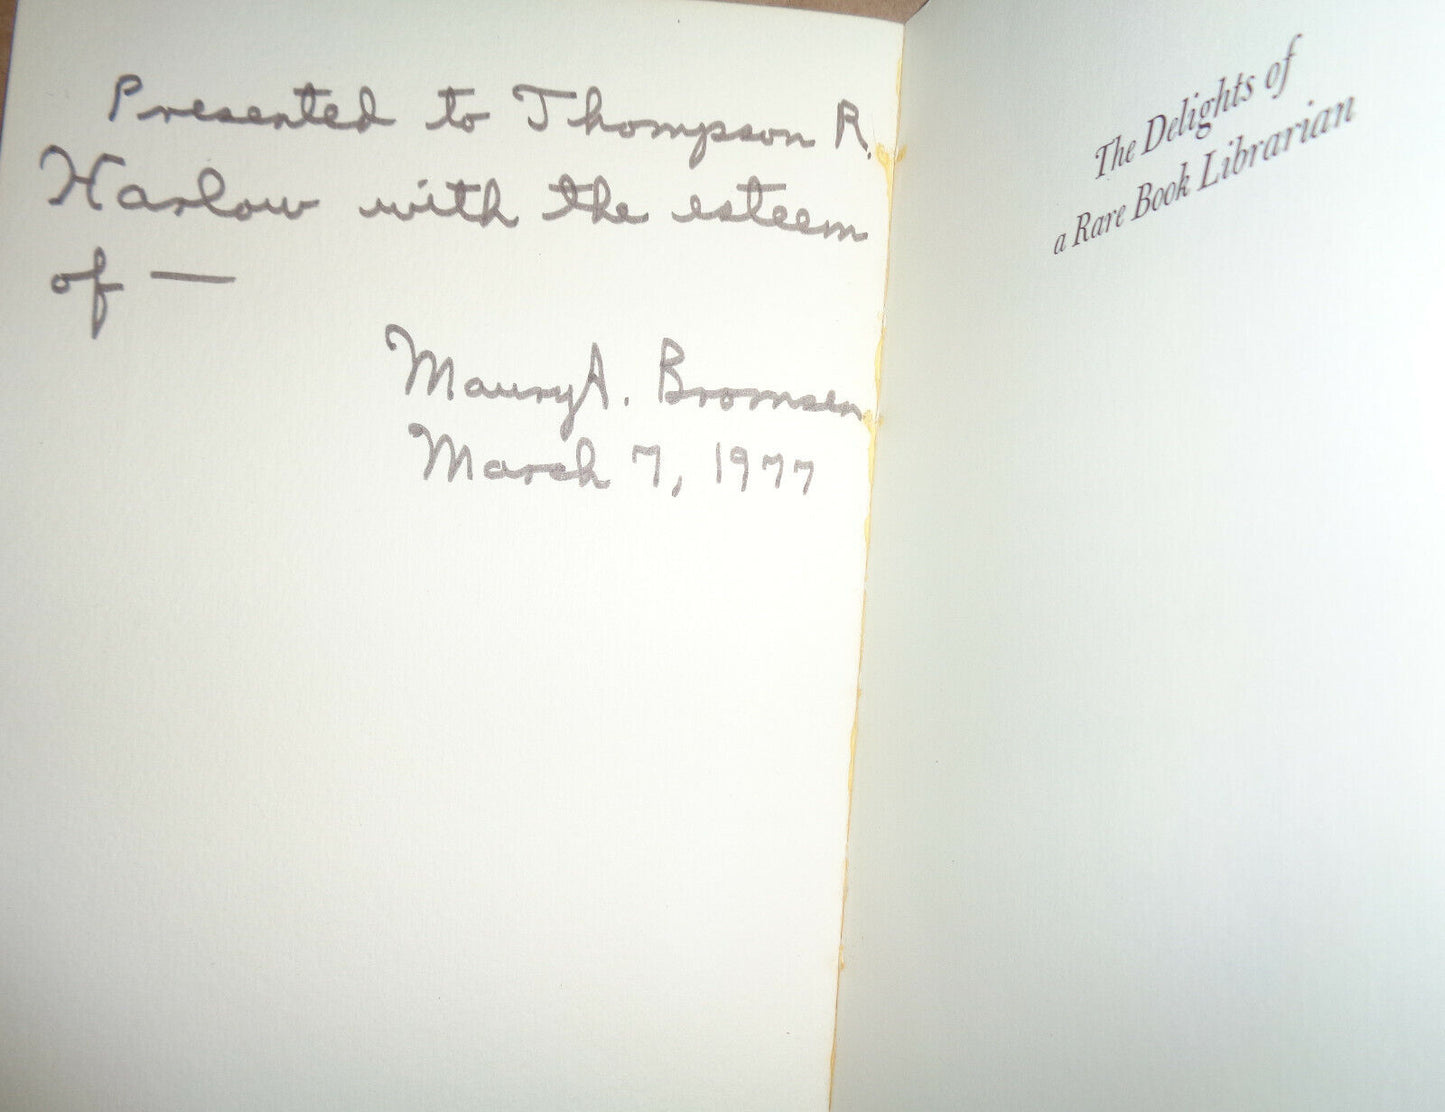 Presented to Thompson R.
Harlow with the esteem
of —
Maury A. Bromsen
March 7, 1977
The Delights of
a Rare Book Librarian